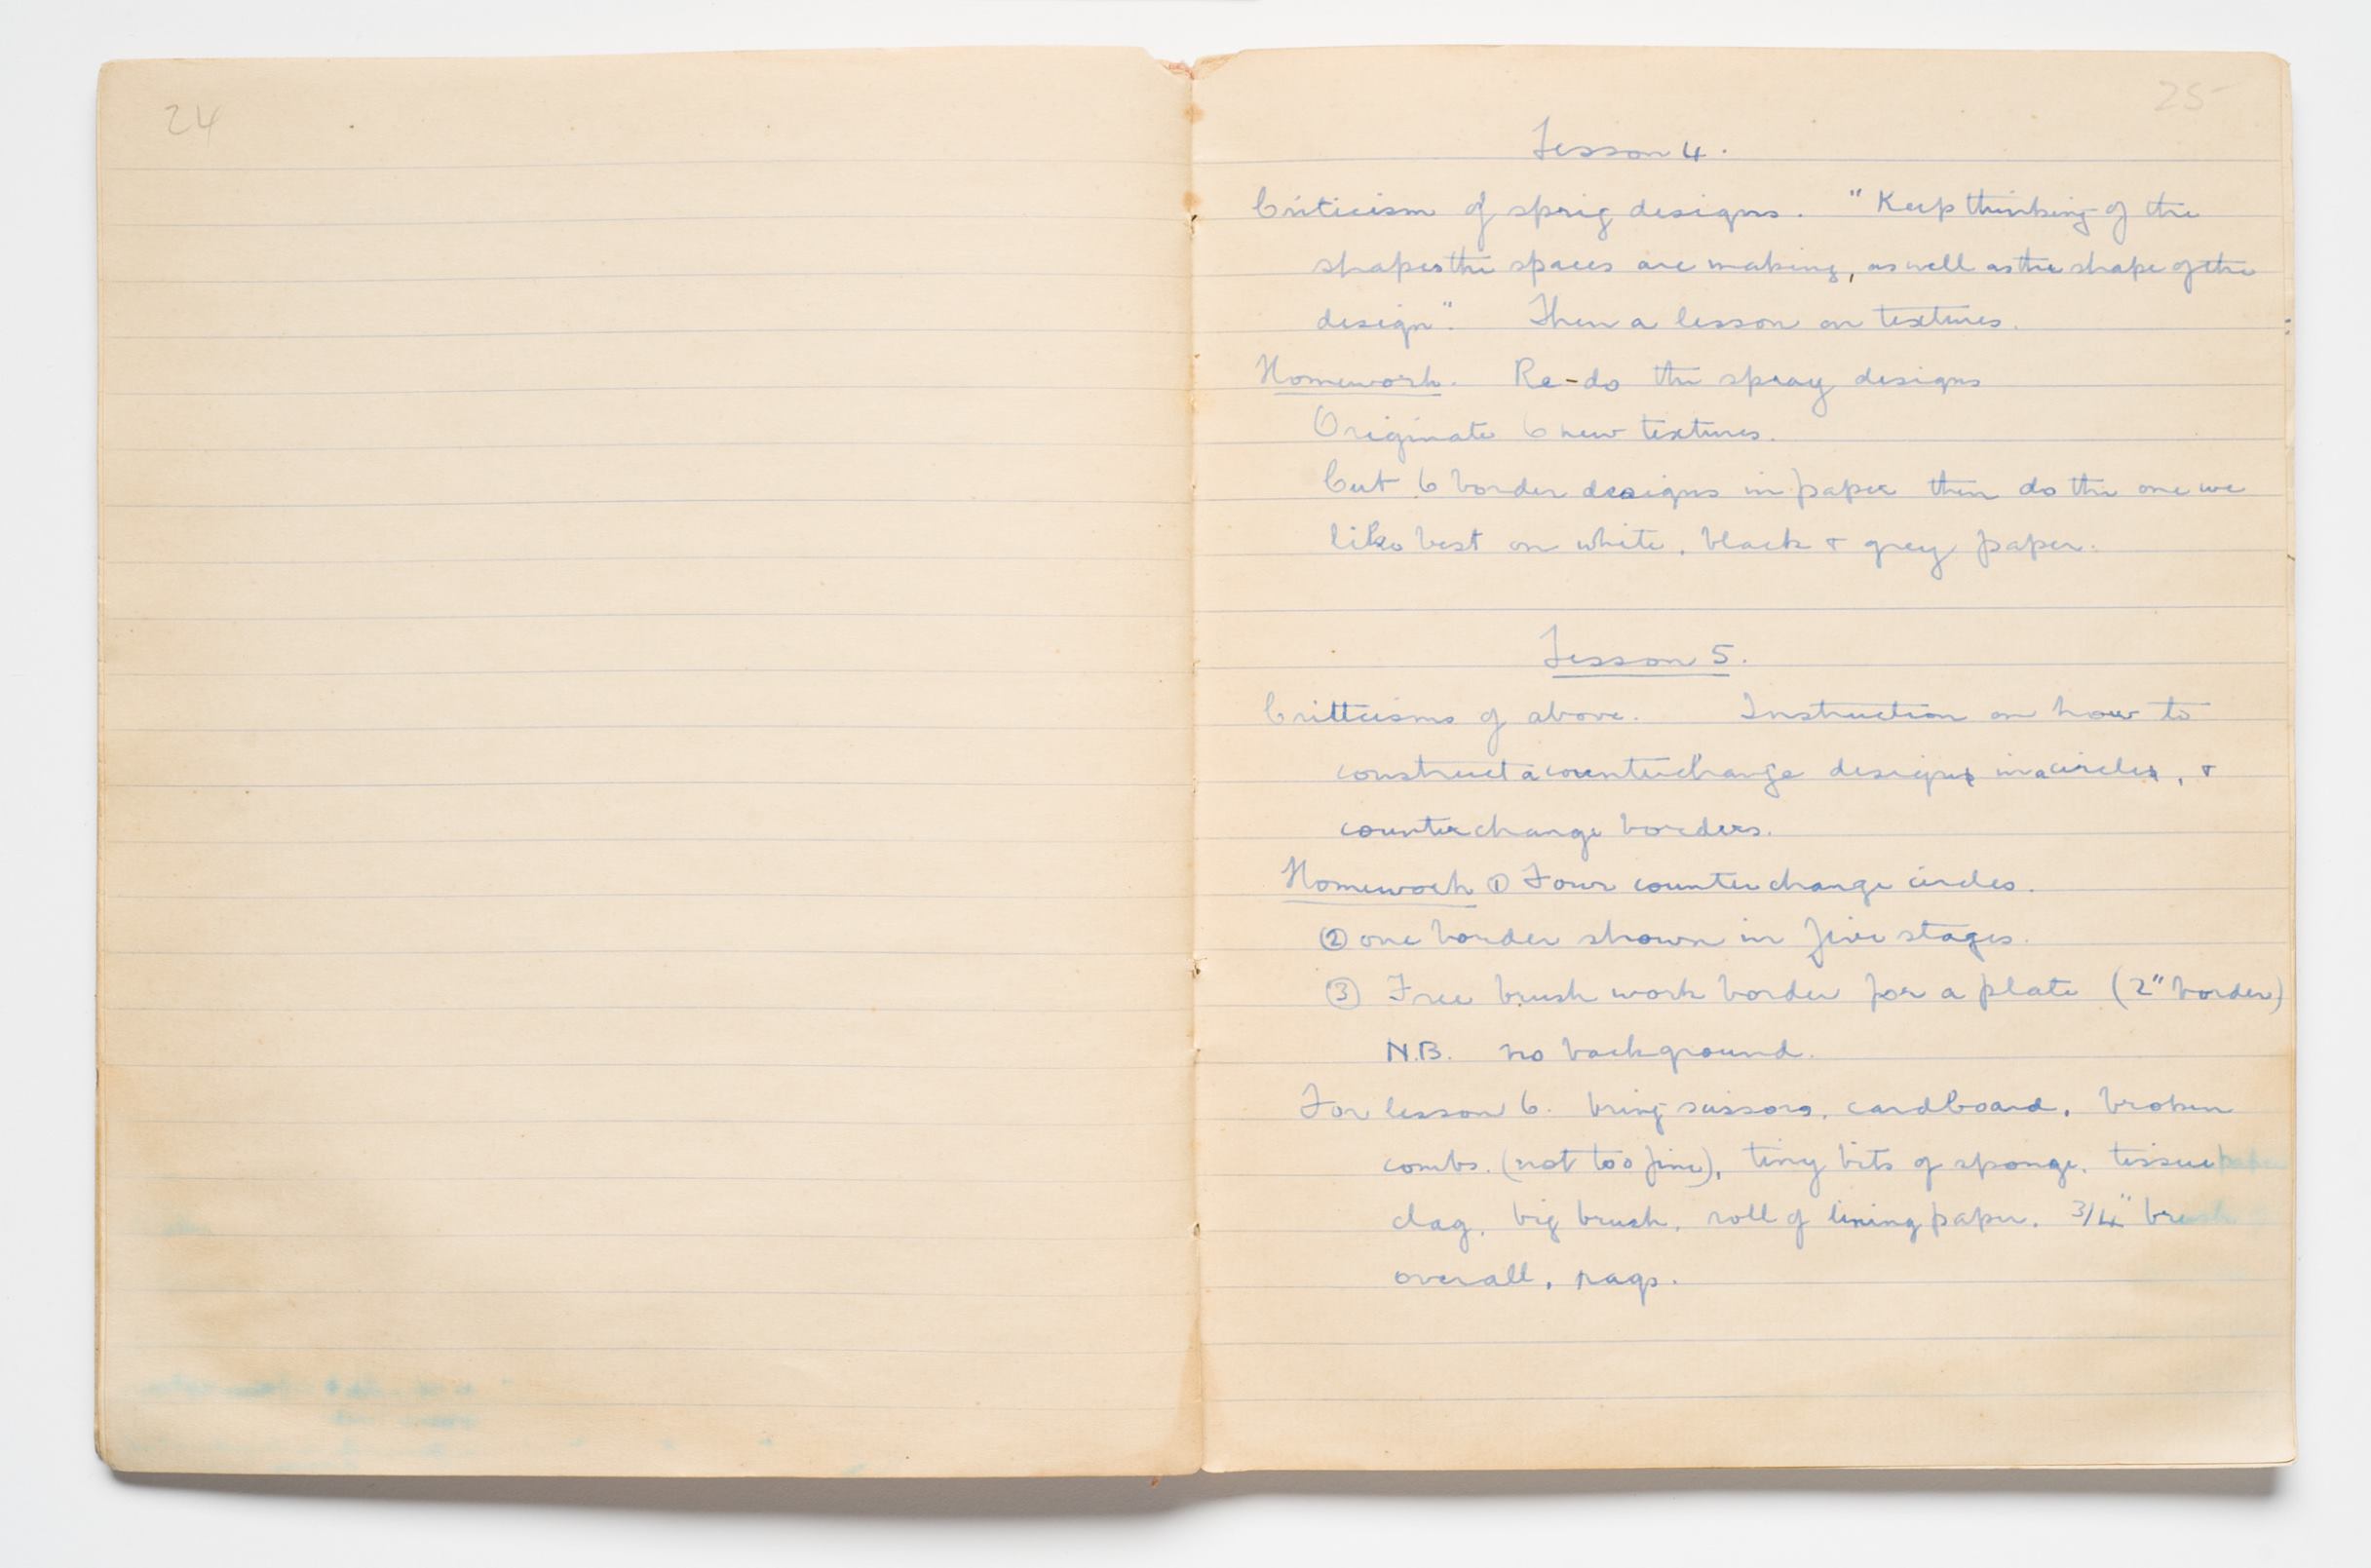 24
25
Lesson 4.
Criticism of sprig designs. "Keep thinking of the
shapes the spaces are making, as well as the shape of the
design". Then a lesson on textures.
Homework. Re-do the spray designs
Originate 6 new textures.
Cut 6 border designs in paper then do the one we
like best on white, black & grey paper.
Lesson 5.
Critticisms of above. Instruction on how to
construct a counterchange design in a circle, &
counterchange borders.
Homework ① Four counterchange circles.
② one border shown in five stages.
③ Free brush work border for a plate (2" border)
N.B. no background.
For lesson 6. bring scissors, cardboard, broken
combs. (not too fine), tiny bits of sponge, tissue paper
clag, big brush, roll of lining paper. 3/4" brush
overall, rags.